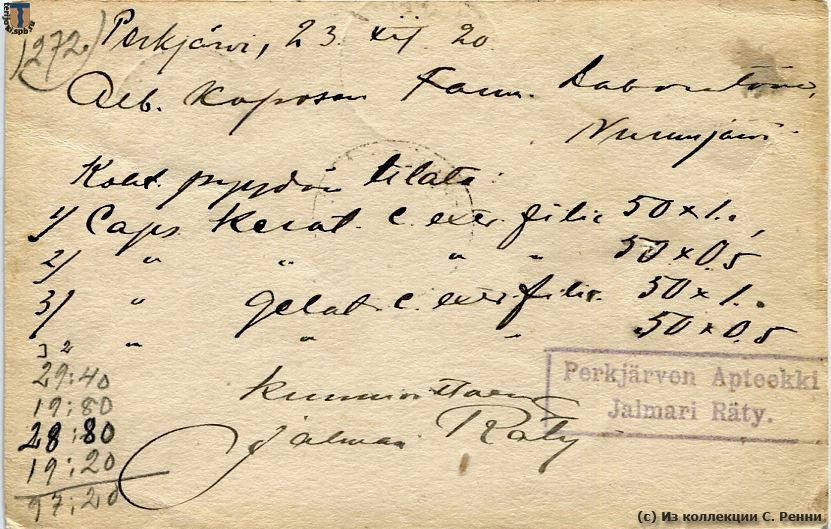 272
Perkjärvi, 23. XII 20.
Alb. Koposen Farm. Laboratorio,
Nurmijärvi
Koht. pyydän tilata:
1/ Caps. Kerat. c. extr. filic 50 x 1.,
2/ " " " " 50 x 0.5
3/ " Gelat. c. extr. filic. 50 x 1.
" " " 50 x 0.5
29:40
19:80
28:80
19:20
97:20
Kunnioittaen
Jalmari Räty
Perkjärven Apteekki
Jalmari Räty.
terijoki.spb.ru
(c) Из коллекции С. Ренни